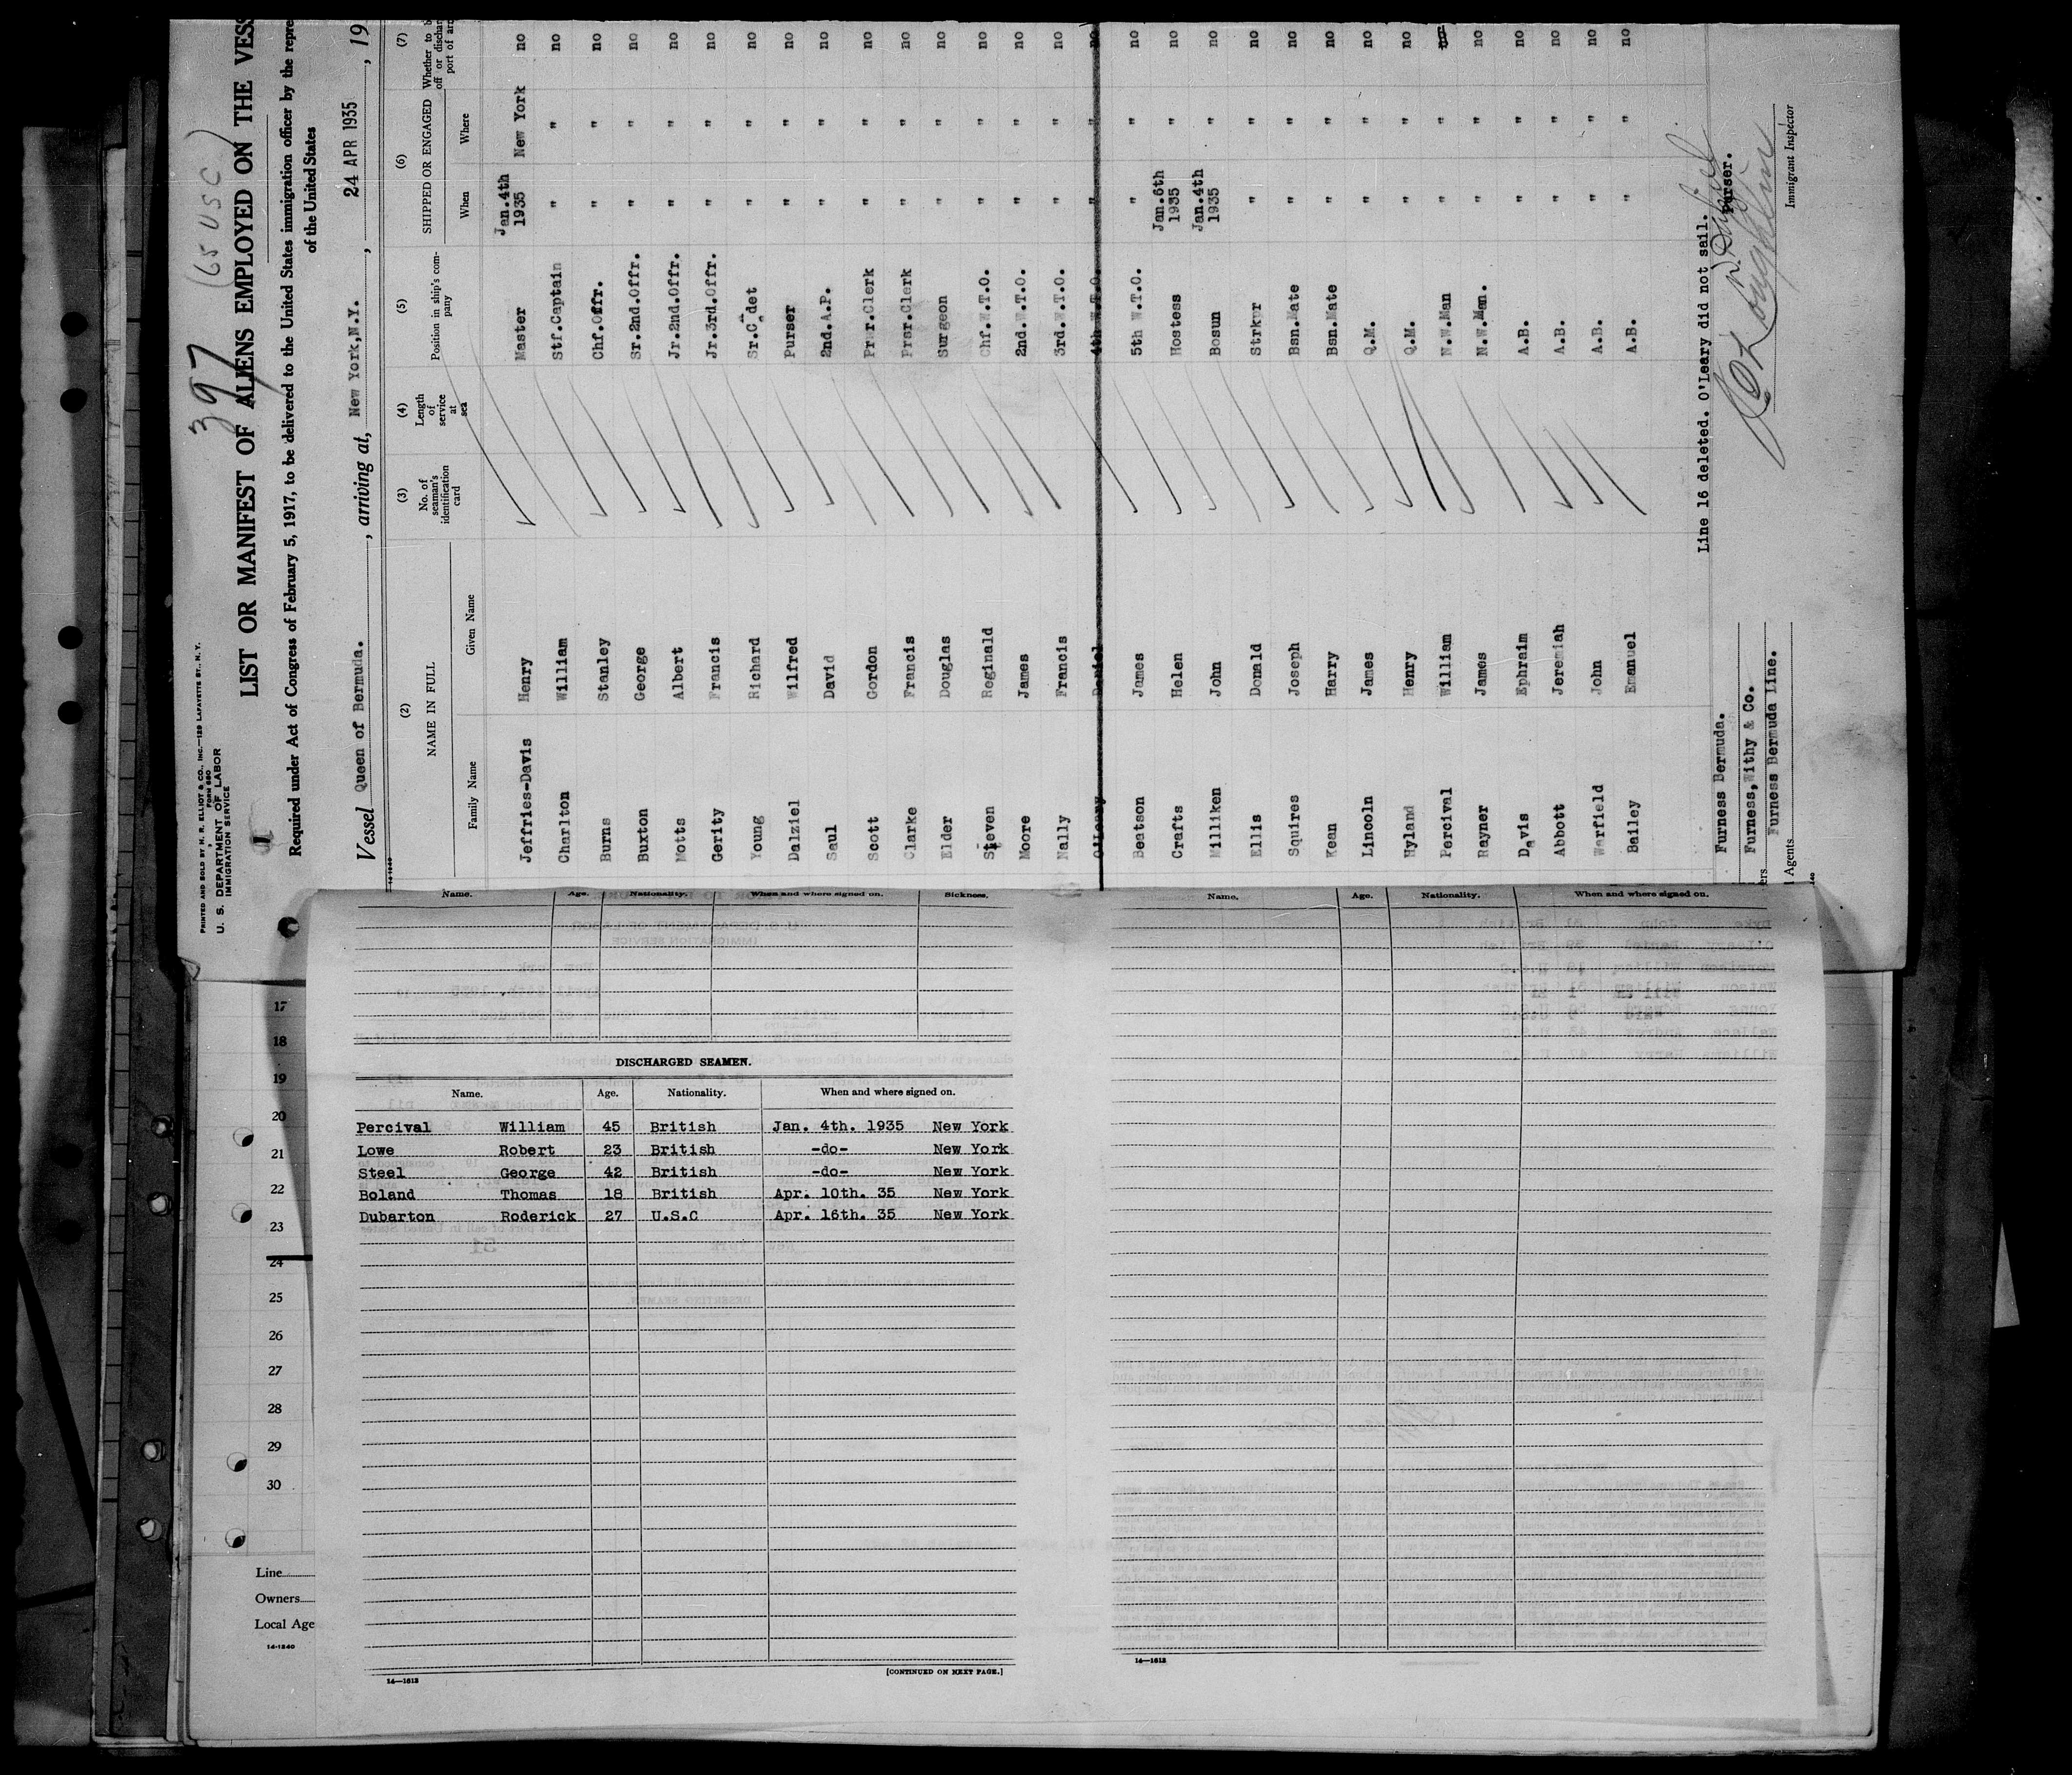 PRINTED AND SOLD BY M. R. ELLIOT & CO., INC.—129 LAFAYETTE ST., N. Y.
FORM 680
U. S. DEPARTMENT OF LABOR
IMMIGRATION SERVICE
1
397 (65 USC)
LIST OR MANIFEST OF ALIENS EMPLOYED ON THE VESS
Required under Act of Congress of February 5, 1917, to be delivered to the United States immigration officer by the repre
of the United States
Vessel Queen of Bermuda., arriving at, New York,N.Y., 24 APR 1935, 19
(2) (3) (4) (5) (6) (7)
NAME IN FULL No. of seaman's identification card Length of service at sea Position in ship's company SHIPPED OR ENGAGED Whether to b off or dischar port of arr
Family Name Given Name When Where
Jeffries-Davis Henry Master Jan.4th 1935 New York no
Charlton William Stf.Captain " " no
Burns Stanley Chf.Offr. " " no
Buxton George Sr.2nd.Offr. " " no
Motts Albert Jr.2nd.Offr. " " no
Gerity Francis Jr.3rd.Offr. " " no
Young Richard Sr.Cadet " " no
Dalziel Wilfred Purser " " no
Saul David 2nd.A.P. " " no
Scott Gordon Prsr.Clerk " " no
Clarke Francis Prsr.Clerk " " no
Elder Douglas Surgeon " " no
Steven Reginald Chf.W.T.O. " " no
Moore James 2nd.W.T.O. " " no
Nally Francis 3rd.W.T.O. " " no
O'Leary Daniel 4th W.T.O. " " no
Beatson James 5th W.T.O. " " no
Crafts Helen Hostess Jan.6th 1935 " no
Milliken John Bosun Jan.4th 1935 " no
Ellis Donald Strkpr " " no
Squires Joseph Bsn.Mate " " no
Kean Harry Bsn.Mate " " no
Lincoln James Q.M. " " no
Hyland Henry Q.M. " " no
Percival William N.W.Man " "
Rayner James N.W.Man. " " no
Davis Ephraim A.B. " " no
Abbott Jeremiah A.B. " " no
Warfield John A.B. " " no
Bailey Emanuel A.B. " " no
Line 16 deleted. O'Leary did not sail.
Furness Bermuda.
Purser.
Furness,Withy & Co.
ers
Furness Bermuda Line.
l Agents
Immigrant Inspector
14-1240
Name. Age. Nationality. When and where signed on. Sickness.
Name. Age. Nationality. When and where signed on.
DISCHARGED SEAMEN.
Name. Age. Nationality. When and where signed on.
Percival William 45 British Jan. 4th. 1935 New York
Lowe Robert 23 British -do- New York
Steel George 42 British -do- New York
Boland Thomas 18 British Apr. 10th. 35 New York
Dubarton Roderick 27 U.S.C Apr. 16th. 35 New York
[CONTINUED ON NEXT PAGE.]
14—1613
14—1613
17
18
19
20
21
22
23
24
25
26
27
28
29
30
Line
Owners
Local Age
14-1240